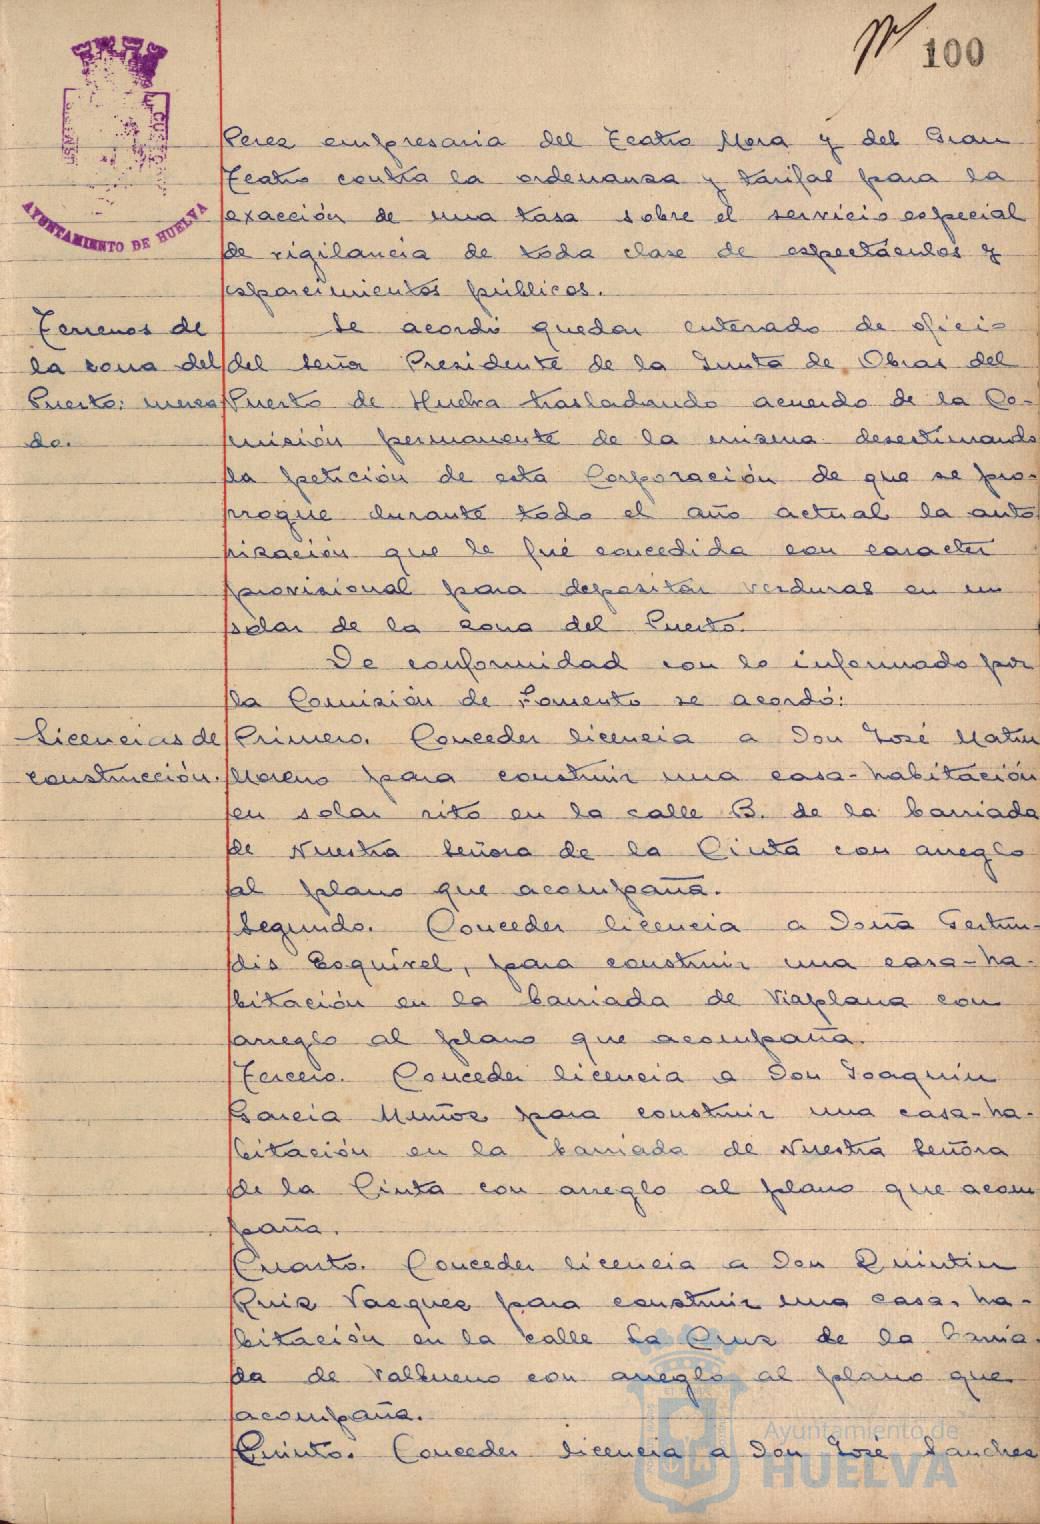 100
AYUNTAMIENTO DE HUELVA
Perez empresaria del Teatro Mora y del Gran
Teatro contra la ordenanza y tarifas para la
exacción de una tasa sobre el servicio especial
de vigilancia de toda clase de espectáculos y
esparcimientos públicos.
Terrenos de
la zona del
Puerto: merca
do.
Se acordó quedar enterado de oficio
del Señor Presidente de la Junta de Obras del
Puerto de Huelva trasladando acuerdo de la Co-
misión permanente de la misma desestimando
la petición de esta Corporación de que se pro-
rrogue durante todo el año actual la auto
rización que le fué concedida con caracter
provisional para depositar verduras en un
solar de la zona del Puerto.
De conformidad con lo informado por
la Comisión de Fomento se acordó:
Licencias de
construcción.
Primero. Conceder licencia a Don José Matin
Moreno para construir una casa-habitación
en solar sito en la calle B. de la barriada
de Nuestra Señora de la Cinta con arreglo
al plano que acompaña.
Segundo. Conceder licencia a Doña Gertru-
dis Esquivel, para construir una casa-ha-
bitación en la barriada de Viaplana con
arreglo al plano que acompaña.
Tercero. Conceder licencia a Don Joaquin
Garcia Muñoz para construir una casa-ha-
bitación en la barriada de Nuestra Señora
de la Cinta con arreglo al plano que acom
paña.
Cuarto. Conceder licencia a Don Quintin
Ruiz Vazquez para construir una casa-ha-
bitación en la calle La Cruz de la barria-
da de Valbueno con arreglo al plano que
acompaña.
Quinto. Conceder licencia a Don José Sanchez
Ayuntamiento de
HUELVA